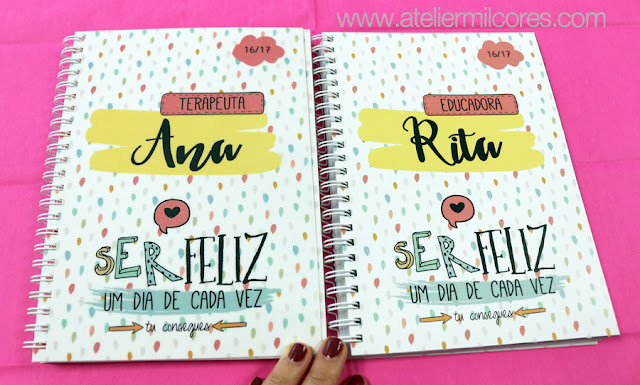 www.ateliermilcores.com
16/17
TERAPEUTA
Ana
SER FELIZ
UM DIA DE CADA VEZ
tu consegues
16/17
EDUCADORA
Rita
SER FELIZ
UM DIA DE CADA VEZ
tu consegues